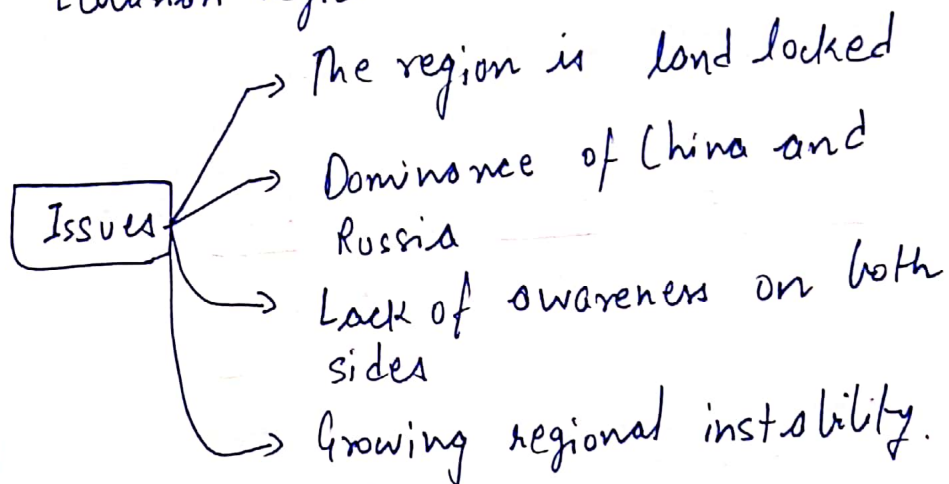 The region is land locked
Dominance of China and
Issues
Russia
Lack of awareness on both
sides
Growing regional instability.